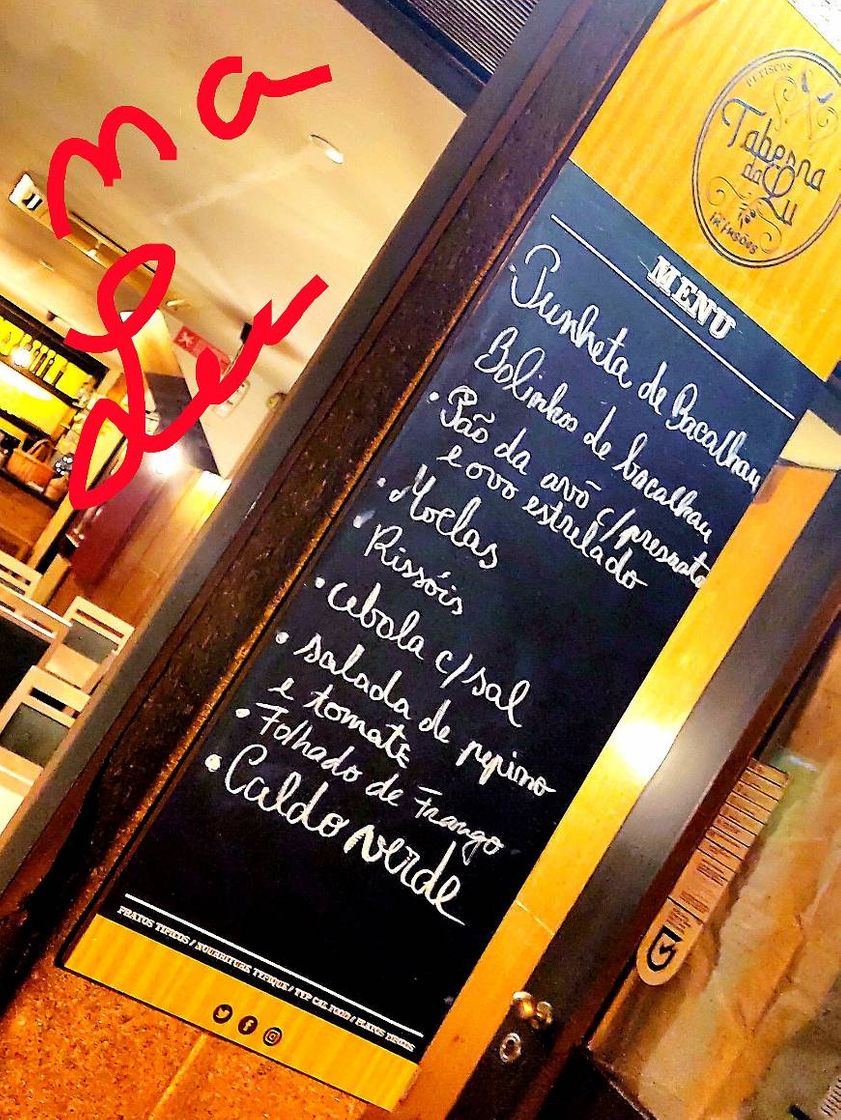 ma
Lu
PETISCOS
Taberna
da Lu
MENU
Punheta de Bacalhau
Bolinhos de bacalhau
• Pão da avó c/presunto
e ovo estrelado
• Moelas
• Rissóis
• cebola c/sal
• salada de pepino
e tomate
• Folhado de Frango
• Caldo verde
PRATOS TIPICOS / NOURRITURE TYPIQUE / TYPICAL FOOD / PLATOS TIPICOS